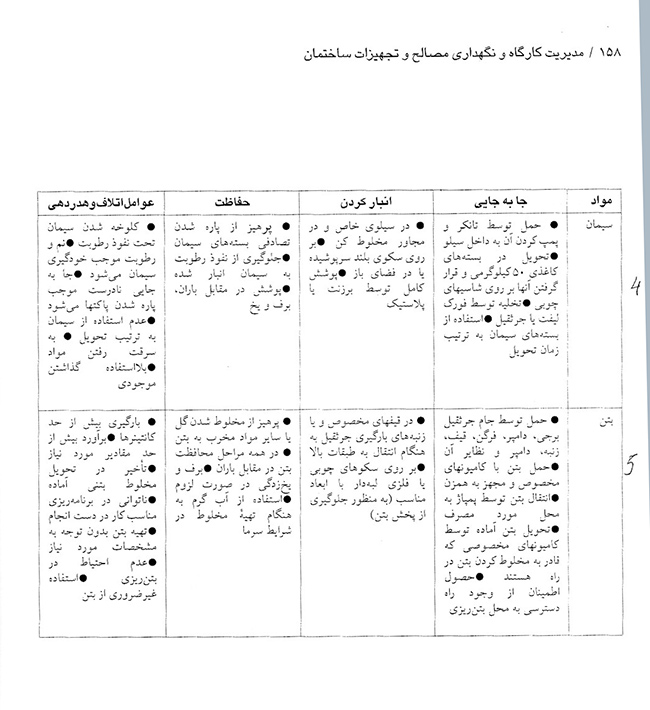 ۱۵۸ / مدیریت کارگاه و نگهداری مصالح و تجهیزات ساختمان
مواد
جا به جایی
انبار کردن
حفاظت
عوامل اتلاف و هدردهی
سیمان
● حمل توسط تانکر و
پمپ کردن آن به داخل سیلو
● تحویل در بسته‌های
کاغذی ۵۰ کیلوگرمی و قرار
گرفتن آنها بر روی شاسیهای
چوبی ● تخلیه توسط فورک
لیفت یا جرثقیل ● استفاده از
بسته‌های سیمان به ترتیب
زمان تحویل
● در سیلوی خاص و در
مجاور مخلوط کن ● بر
روی سکوی بلند سرپوشیده
یا در فضای باز ● پوشش
کامل توسط برزنت یا
پلاستیک
● پرهیز از پاره شدن
تصادفی بسته‌های سیمان
● جلوگیری از نفوذ رطوبت
به سیمان انبار شده
● پوشش در مقابل باران،
برف و یخ
● کلوخه شدن سیمان
تحت نفوذ رطوبت ● نم و
رطوبت موجب خودگیری
سیمان می‌شود ● جا به
جایی نادرست موجب
پاره شدن پاکتها می‌شود
● عدم استفاده از سیمان
به ترتیب تحویل ● به
سرقت رفتن مواد
● بلااستفاده گذاشتن
موجودی
4
بتن
● حمل توسط جام جرثقیل
برجی، دامپر، فرگن، قیف،
زنبه، دامپر و نظایر آن
● حمل بتن با کامیونهای
مخصوص و مجهز به همزن
● انتقال بتن توسط پمپاژ به
محل مورد مصرف
● تحویل بتن آماده توسط
کامیونهای مخصوصی که
قادر به مخلوط کردن بتن در
راه هستند ● حصول
اطمینان از وجود راه
دسترسی به محل بتن‌ریزی
● در قیفهای مخصوص و یا
زنبه‌های بارگیری جرثقیل به
هنگام انتقال به طبقات بالا
● بر روی سکوهای چوبی
یا فلزی لبه‌دار با ابعاد
مناسب (به منظور جلوگیری
از پخش بتن)
● پرهیز از مخلوط شدن گل
یا سایر مواد مخرب به بتن
● در همه مراحل محافظت
بتن در مقابل باران ● برف و
یخ‌زدگی در صورت لزوم
● استفاده از آب گرم به
هنگام تهیهٔ مخلوط در
شرایط سرما
● بارگیری بیش از حد
کانتینرها ● برآورد بیش از
حد مقادیر مورد نیاز
● تأخیر در تحویل
مخلوط بتنی آماده
● ناتوانی در برنامه‌ریزی
مناسب کار در دست انجام
● تهیه بتن بدون توجه به
مشخصات مورد نیاز
● عدم احتیاط در
بتن‌ریزی ● استفاده
غیرضروری از بتن
5